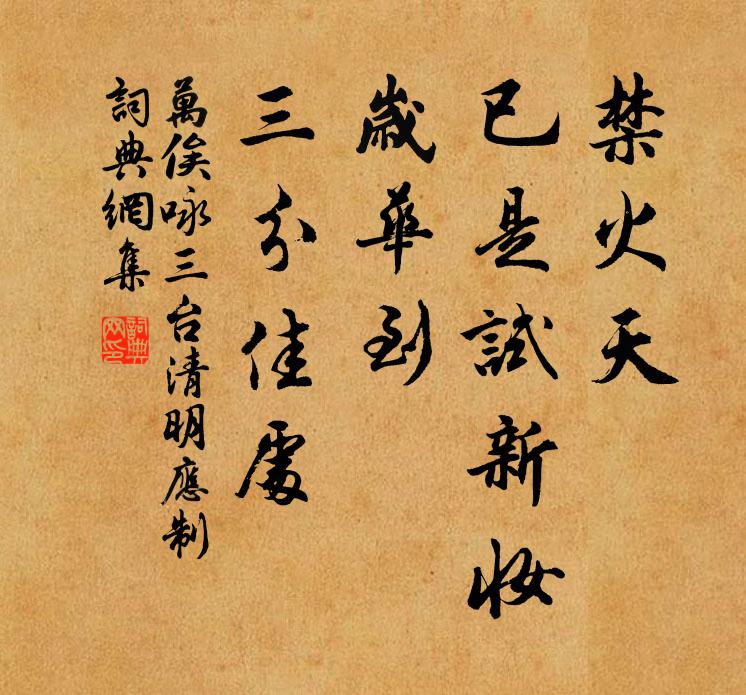 禁火天
已是試新妝
歲華到
三分佳處
萬俟咏三台清明應制
詞典網集
詞典
網印